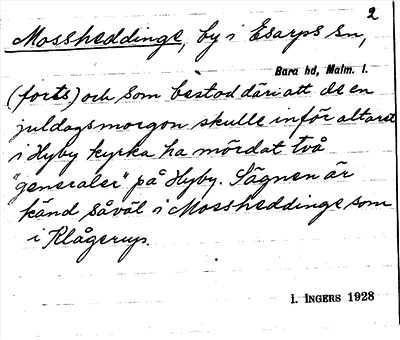 2
Mossheddinge, by i Esarps sn,
Bara hd, Malm. l.
(forts) och som bestod däri att de en
juldagsmorgon skulle inför altaret
i Hyby kyrka ha mördat två
"generaler" på Hyby. Sägnen är
känd såväl i Mossheddinge som
i Klågerup.
I. INGERS 1928